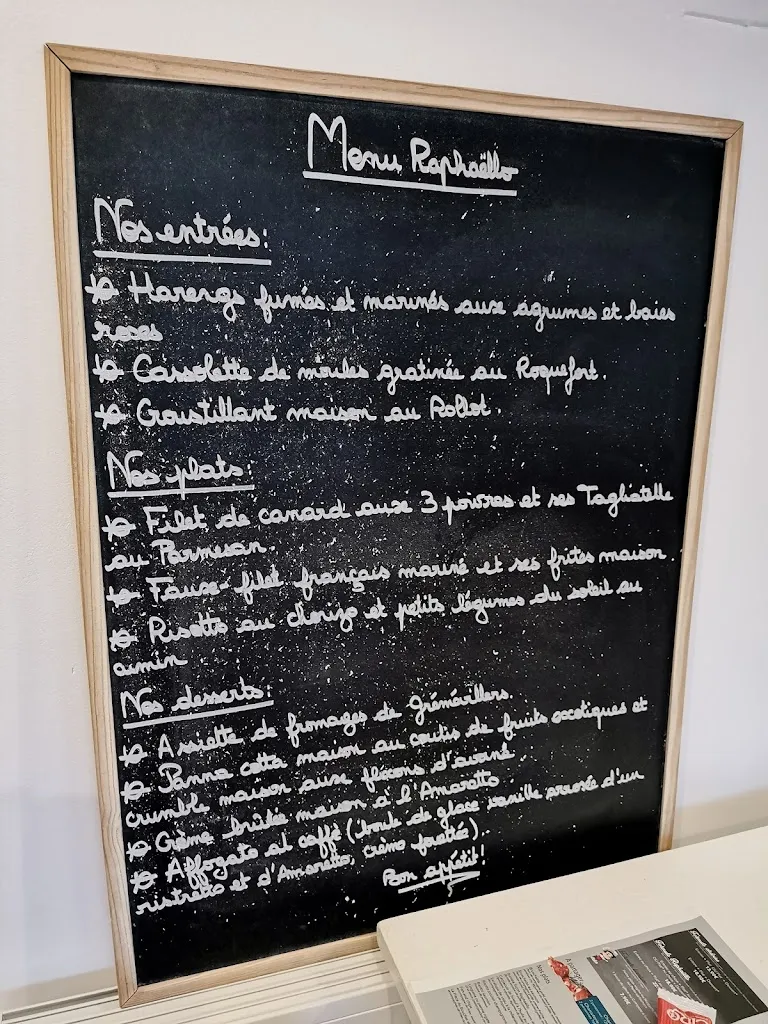 Menu Raphaëllo
Nos entrées:
Harengs fumés et marinés aux agrumes et baies
roses
Cassolette de moules gratinée au Roquefort.
Croustillant maison au Rollot.
Nos plats:
Filet de canard aux 3 poivres et ses Tagliatelle
au Parmesan.
Faux-filet français mariné et ses frites maison.
Risotto au chorizo et petits légumes du soleil au
cumin
Nos desserts:
Assiette de fromages de Grémévillers.
Panna cotta maison au coulis de fruits exotiques et
crumble maison aux flocons d'avoine.
Crème brûlée maison à l'Amaretto
Affogato al caffé (boule de glace vanille arrosée d'un
ristretto et d'Amaretto, crème fouetté).
Bon appétit!